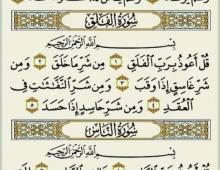 سُورَةُ الْفَلَقِ
بِسْمِ اللَّهِ الرَّحْمَٰنِ الرَّحِيمِ
قُلْ أَعُوذُ بِرَبِّ الْفَلَقِ ١ مِن شَرِّ مَا خَلَقَ ٢ وَمِن
شَرِّ غَاسِقٍ إِذَا وَقَبَ ٣ وَمِن شَرِّ النَّفَّاثَاتِ فِي
الْعُقَدِ ٤ وَمِن شَرِّ حَاسِدٍ إِذَا حَسَدَ ٥
سُورَةُ النَّاسِ
بِسْمِ اللَّهِ الرَّحْمَٰنِ الرَّحِيمِ